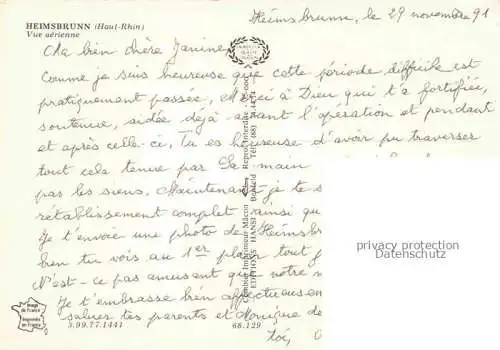 HEIMSBRUNN (Haut-Rhin)
Vue aérienne
Heimsbrunn, le 29 novembre 91
Ma bien chère Janine,
Comme je suis heureuse que cette période difficile est
pratiquement passée, Merci à Dieu qui t'a fortifiée,
soutenue, aidée déjà avant l'opération et pendant
et après celle-ci. Tu es heureuse d'avoir pu traverser
tout cela tenue par Sa main
pas les siens. Maintenant je te s
rétablissement complet ainsi qu
Je t'envoie une photo de Heimsb
bien tu vois au 1er plan tout
N'est-ce pas amusant que notre
Je t'embrasse bien affectueusem
saluer tes parents et Monique de
toi,
privacy protection
Datenschutz
Combier Imprimeur Mâcon
EDITIONS HANSI
Reproduction interdite
Tél. (88)
Image de France
Imprimée en France
3.99.77.1441
68.129